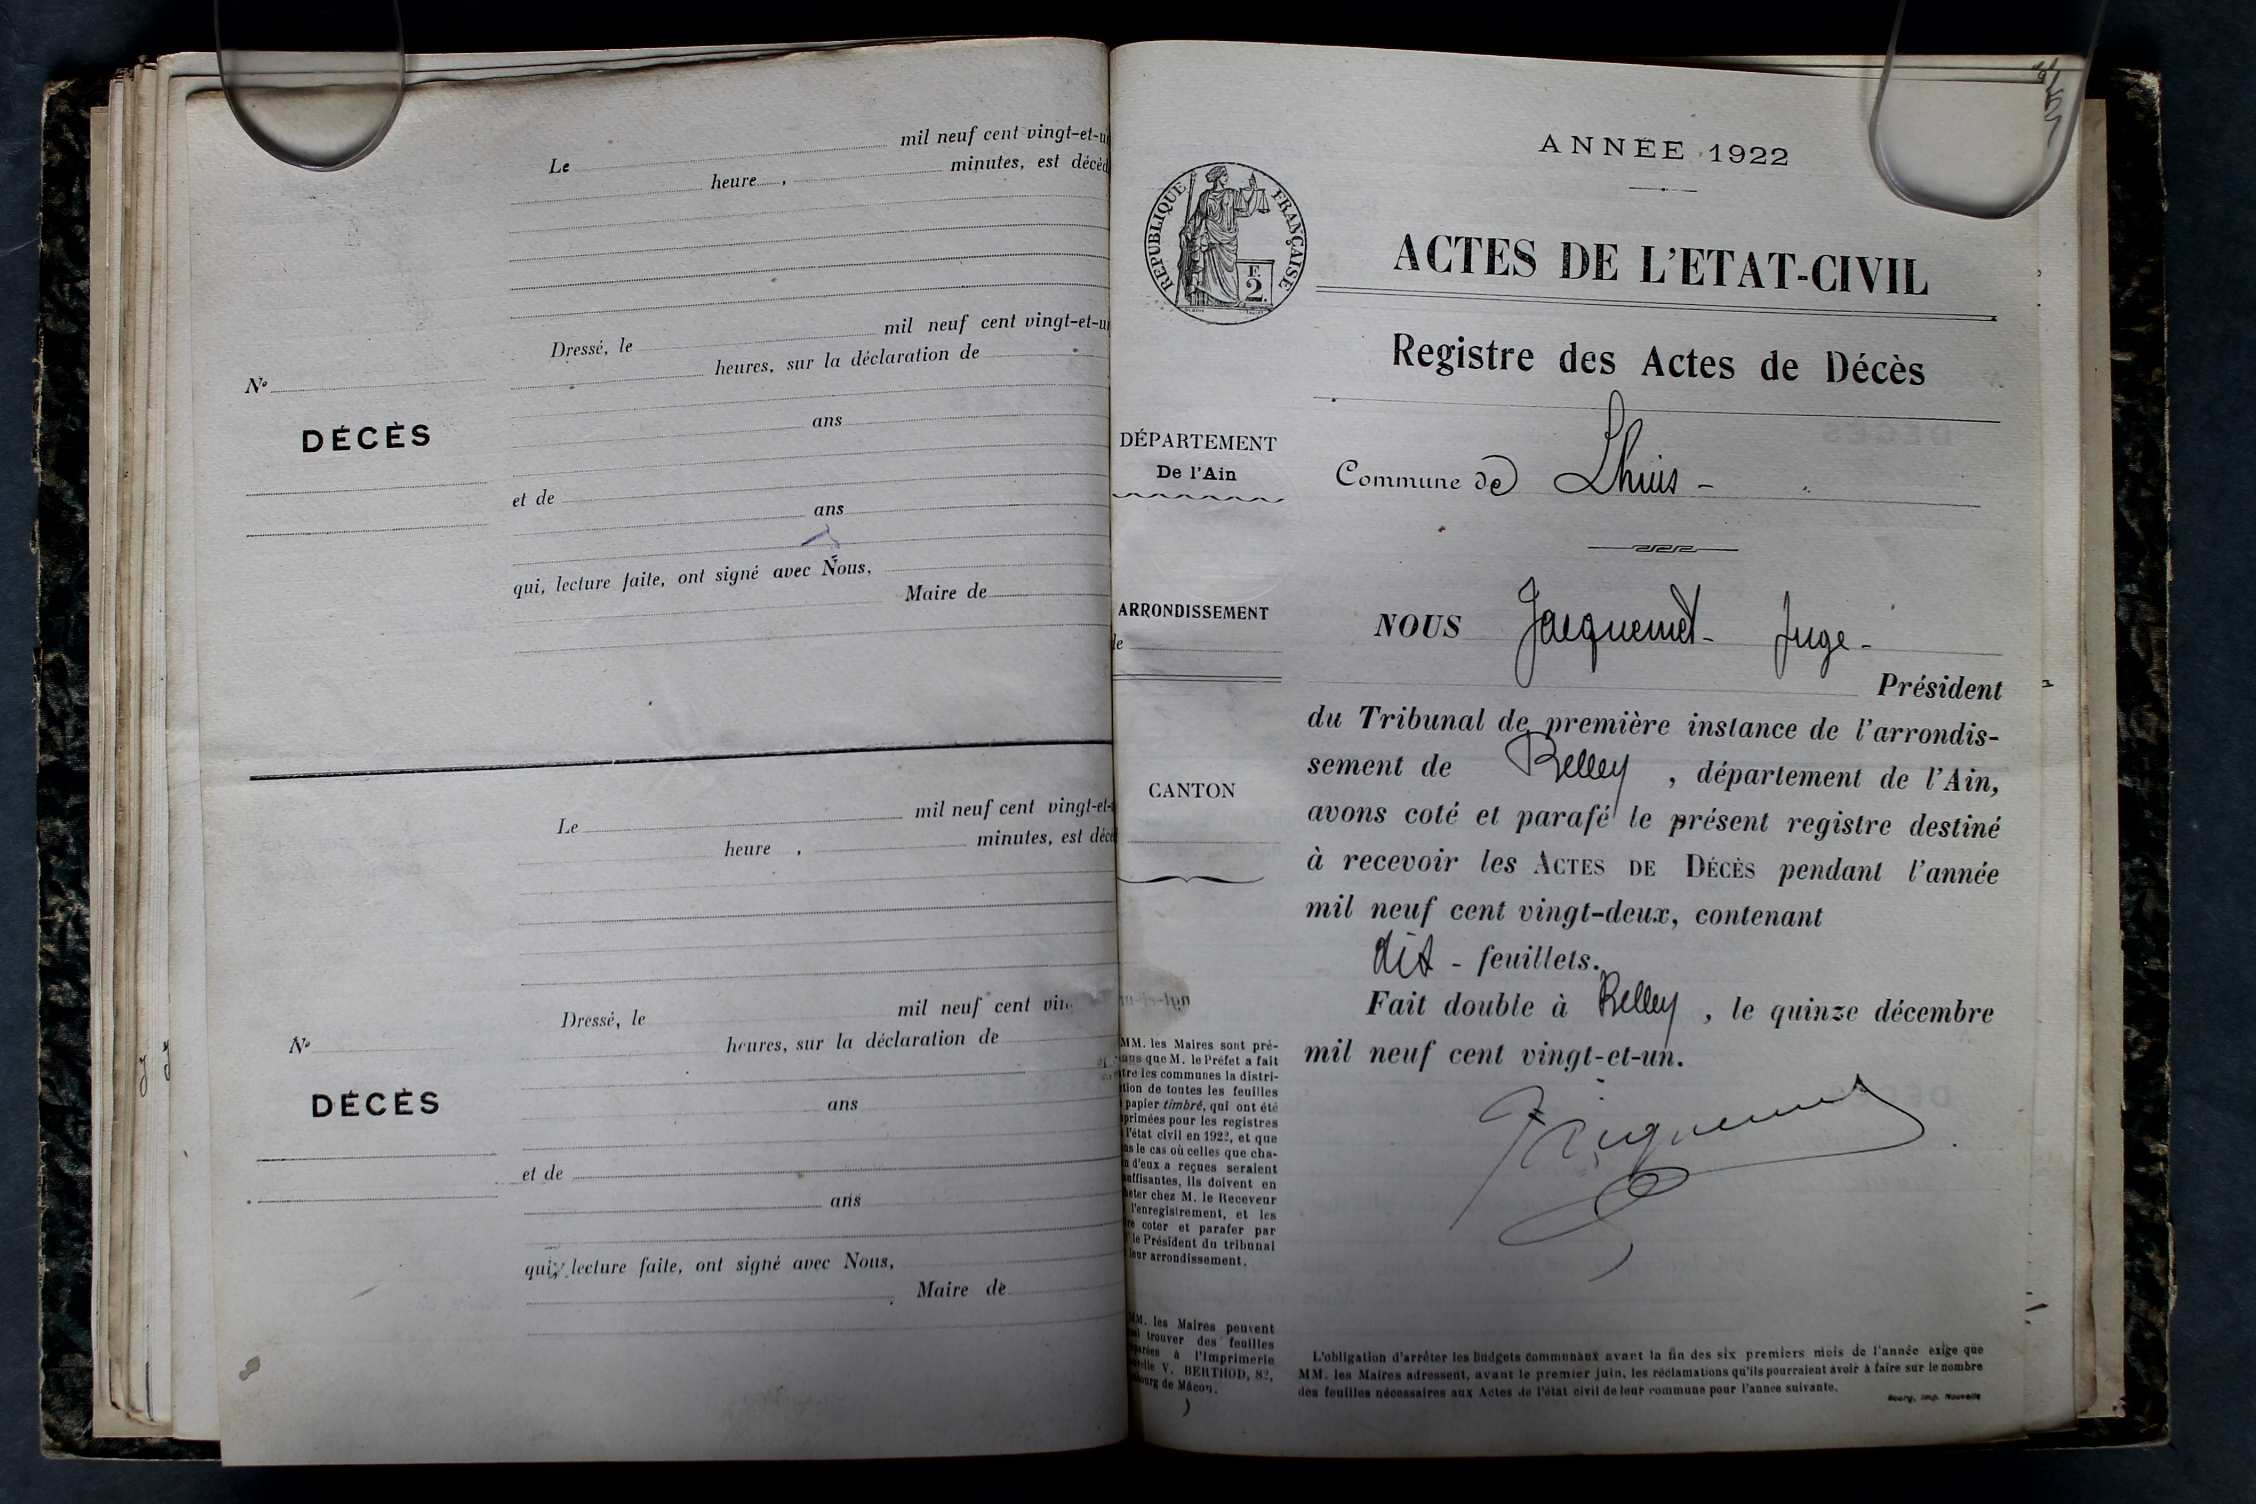 Le mil neuf cent vingt-et-u
heure , minutes, est décéd
Dressé, le mil neuf cent vingt-et-u
heures, sur la déclaration de
N°
DÉCÈS
ans
et de
ans
qui, lecture faite, ont signé avec Nous,
Maire de
Le mil neuf cent vingt-et-
heure , minutes, est décé
Dressé, le mil neuf cent vin
N° heures, sur la déclaration de
DÉCÈS
ans
et de
ans
qui, lecture faite, ont signé avec Nous,
Maire de
ANNÉE 1922
RÉPUBLIQUE FRANÇAISE
F.
2.
ACTES DE L'ETAT-CIVIL
Registre des Actes de Décès
DÉPARTEMENT
De l'Ain
Commune de Lhuis -
ARRONDISSEMENT
de
CANTON
NOUS Jacquemet - Juge -
Président
du Tribunal de première instance de l'arrondis-
sement de Belley , département de l'Ain,
avons coté et parafé le présent registre destiné
à recevoir les ACTES DE DÉCÈS pendant l'année
mil neuf cent vingt-deux, contenant
dix - feuillets.
Fait double à Belley , le quinze décembre
mil neuf cent vingt-et-un.
Jacquemet
MM. les Maires sont pré-
nus que M. le Préfet a fait
tre les communes la distri-
tion de toutes les feuilles
papier timbré, qui ont été
primées pour les registres
l'état civil en 1922, et que
ns le cas où celles que cha-
n d'eux a reçues seraient
suffisantes, ils doivent en
heter chez M. le Receveur
l'enregistrement, et les
re coter et parafer par
le Président du tribunal
leur arrondissement.
MM. les Maires peuvent
trouver des feuilles
parées à l'Imprimerie
V. BERTHOD, 82,
bourg de Mâcon.
L'obligation d'arrêter les budgets communaux avant la fin des six premiers mois de l'année exige que
MM. les Maires adressent, avant le premier juin, les réclamations qu'ils pourraient avoir à faire sur le nombre
des feuilles nécessaires aux Actes de l'état civil de leur commune pour l'année suivante.
Bourg, Imp. Nouvelle